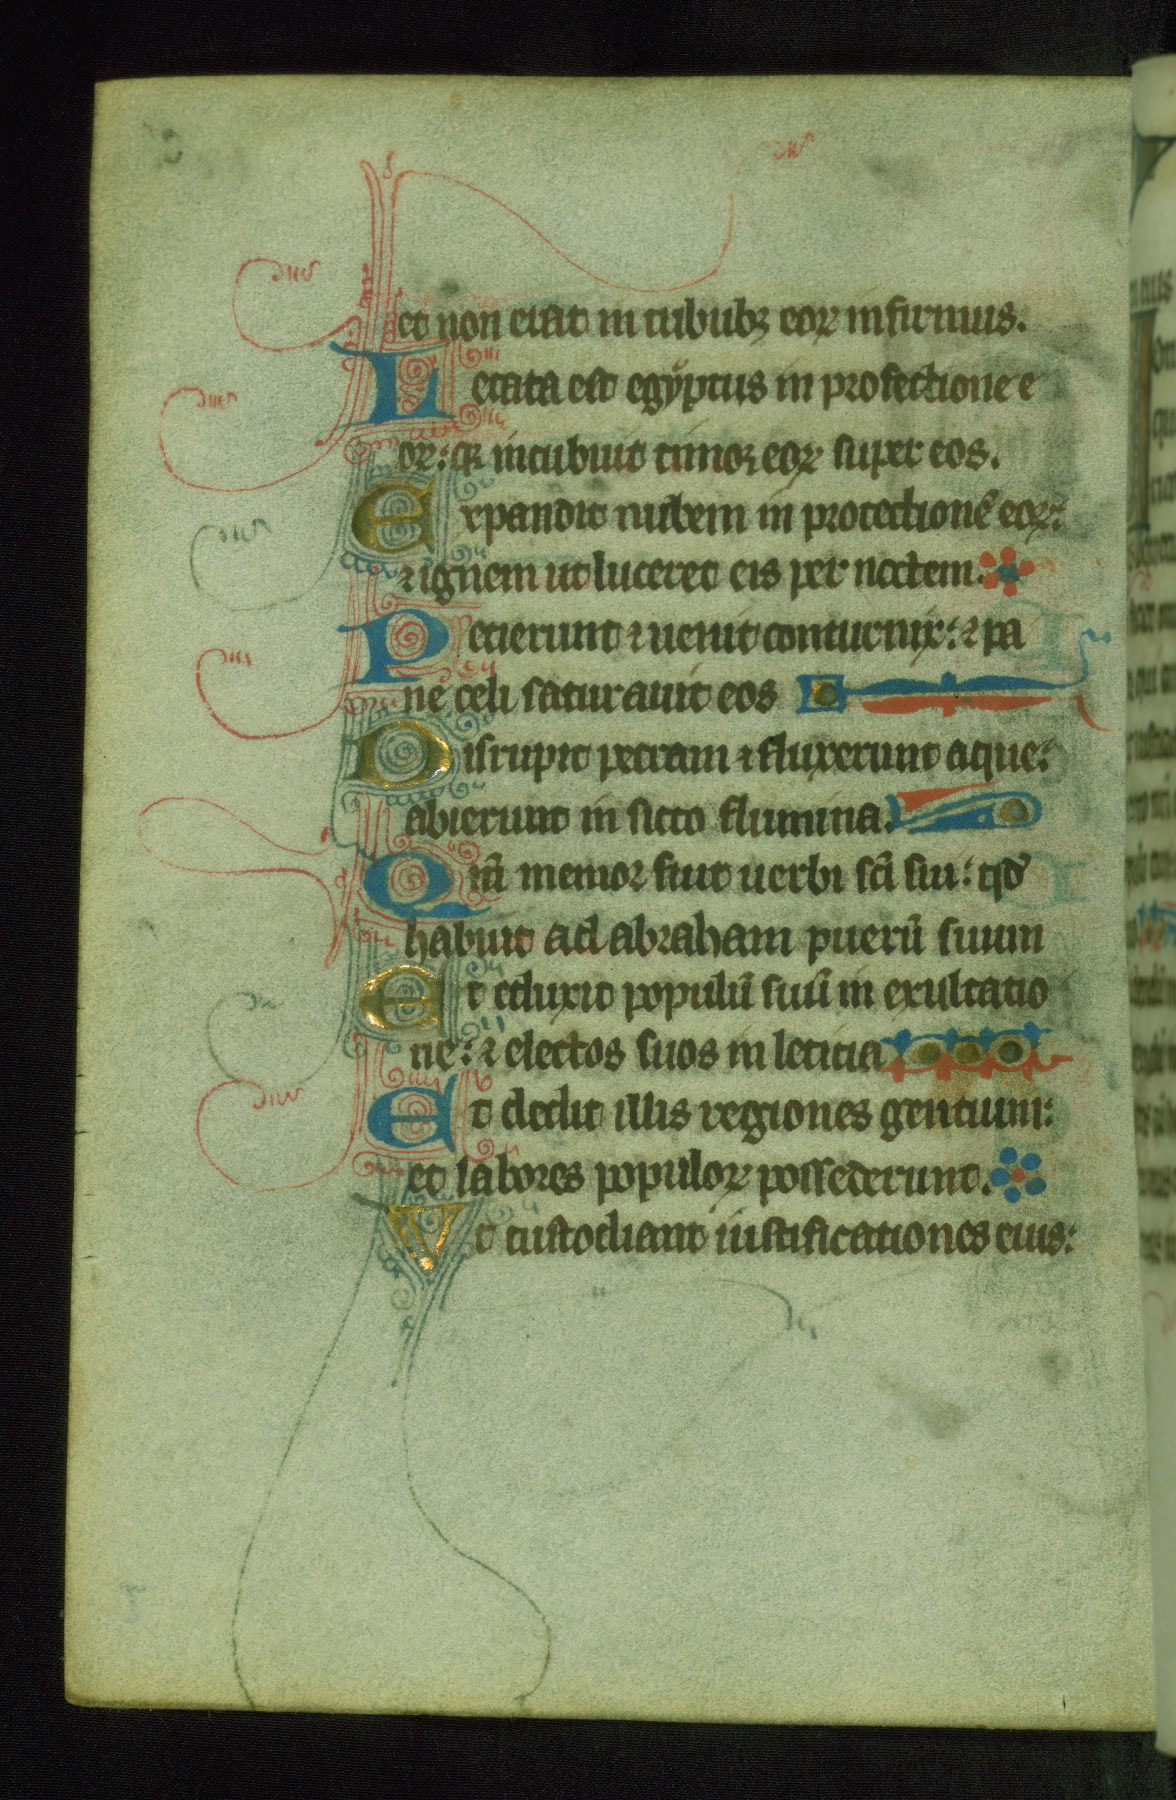 et non erat in tribubꝫ eoꝝ infirmus.
Letata est egyptus in profectione e
oꝝ: qꝛ incubuit timoꝛ eoꝝ super eos.
Expandit nubem in protectionē eoꝝ:
⁊ ignem ut luceret eis per noctem.
Petierunt ⁊ uenit conturnix: ⁊ pa
ne celi saturauit eos
Disrupit petram ⁊ fluxerunt aque:
abierunt in sicco flumina.
Qm̄ memoꝛ fuit uerbi sc̄i sui: qd̄
habuit ad abꝛaham puerū suum
Et eduxit populū suū in exultatio
ne: ⁊ electos suos in leticia
Et dedit illis regiones gentium:
et laboꝛes populoꝝ possederunt.
Vt custodiant iustificationes eius: